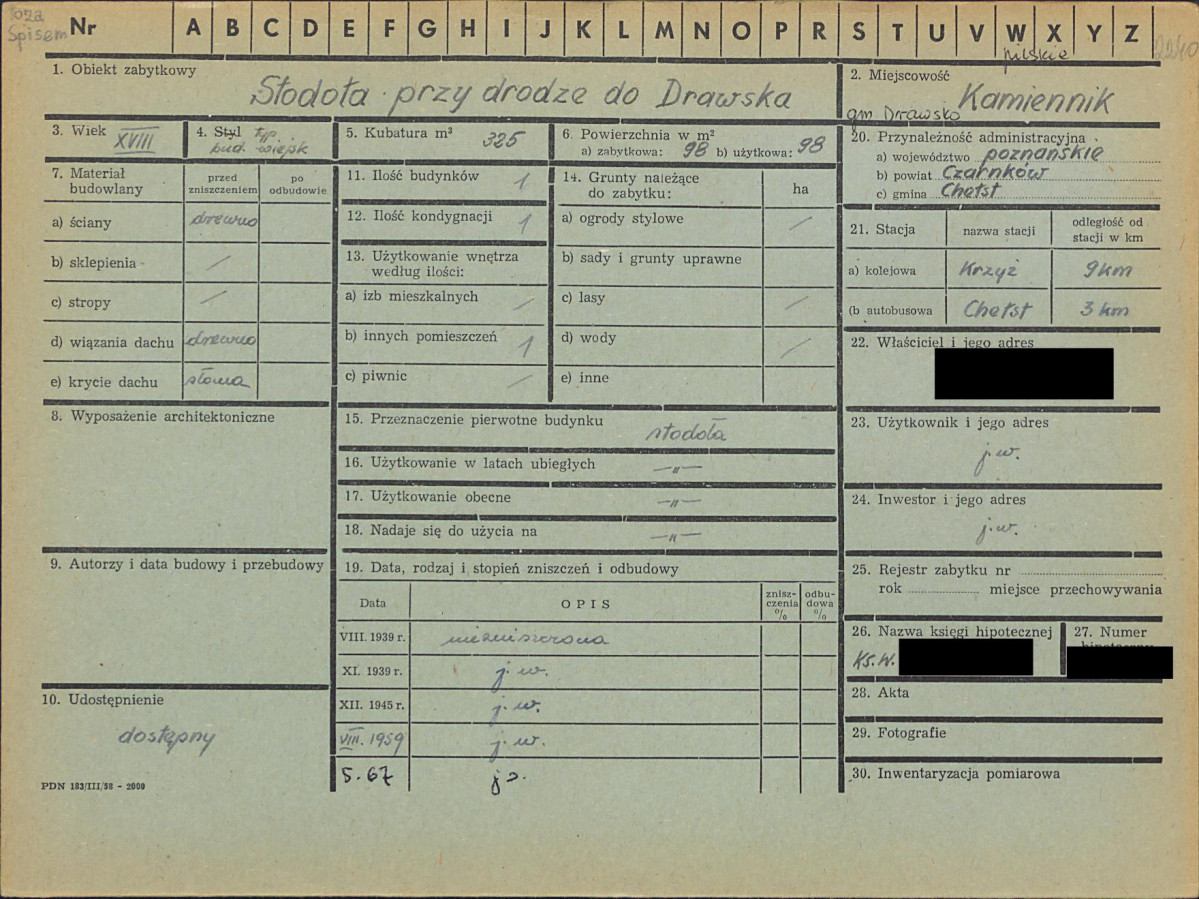 poza
Spisem
Nr A B C D E F G H I J K L M N O P R S T U V W X Y Z
2240
1. Obiekt zabytkowy
Stodoła przy drodze do Drawska
2. Miejscowość
pilskie
Kamiennik
gm Drawsko
3. Wiek XVIII
4. Styl typ
bud. wiejsk
5. Kubatura m³ 325
6. Powierzchnia w m²
a) zabytkowa: 98 b) użytkowa: 98
7. Materiał budowlany
przed zniszczeniem
po odbudowie
a) ściany drewno
b) sklepienia /
c) stropy /
d) wiązania dachu drewno
e) krycie dachu słoma
8. Wyposażenie architektoniczne
9. Autorzy i data budowy i przebudowy
10. Udostępnienie
dostępny
PDN 183/III/58 - 2000
11. Ilość budynków 1
12. Ilość kondygnacji 1
13. Użytkowanie wnętrza
według ilości:
a) izb mieszkalnych /
b) innych pomieszczeń 1
c) piwnic /
14. Grunty należące
do zabytku:
ha
a) ogrody stylowe /
b) sady i grunty uprawne
c) lasy /
d) wody /
e) inne
15. Przeznaczenie pierwotne budynku
stodoła
16. Użytkowanie w latach ubiegłych —„—
17. Użytkowanie obecne —„—
18. Nadaje się do użycia na —„—
19. Data, rodzaj i stopień zniszczeń i odbudowy
Data
OPIS
znisz-
czenia
%
odbu-
dowa
%
VIII. 1939 r. niezniszczona
XI. 1939 r. j. w.
XII. 1945 r. j. w.
VIII. 1959 j. w.
5. 67
20. Przynależność administracyjna
a) województwo poznańskie
b) powiat Czarnków
c) gmina Chełst
21. Stacja
nazwa stacji
odległość od
stacji w km
a) kolejowa Krzyż 9 km
(b autobusowa Chełst 3 km
22. Właściciel i jego adres
23. Użytkownik i jego adres
j.w.
24. Inwestor i jego adres
j.w.
25. Rejestr zabytku nr
rok miejsce przechowywania
26. Nazwa księgi hipotecznej
Ks. W.
27. Numer
28. Akta
29. Fotografie
30. Inwentaryzacja pomiarowa